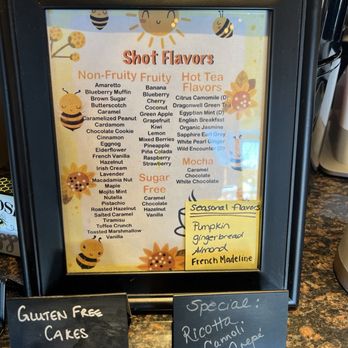 Shot Flavors
Non-Fruity
Amaretto
Blueberry Muffin
Brown Sugar
Butterscotch
Caramel
Caramelized Peanut
Cardamom
Chocolate Cookie
Cinnamon
Eggnog
Elderflower
French Vanilla
Hazelnut
Irish Cream
Lavender
Macadamia Nut
Maple
Mojito Mint
Nutella
Pistachio
Roasted Hazelnut
Salted Caramel
Tiramisu
Toffee Crunch
Toasted Marshmallow
Vanilla
Fruity
Banana
Blueberry
Cherry
Coconut
Green Apple
Grapefruit
Kiwi
Lemon
Mixed Berries
Pineapple
Piña Colada
Raspberry
Strawberry
Sugar
Free
Caramel
Chocolate
Hazelnut
Vanilla
Hot Tea
Flavors
Citrus Camomile (D)
Dragonwell Green Tea
Egyptian Mint (D)
English Breakfast
Organic Jasmine
Sapphire Earl Grey
White Pear Ginger
Wild Encounter
Mocha
Caramel
Chocolate
White Chocolate
Seasonal Flavors
Pumpkin
gingerbread
Almond
French Madeline
GLUTEN FREE
CAKES
Special:
Ricotta
Cannoli